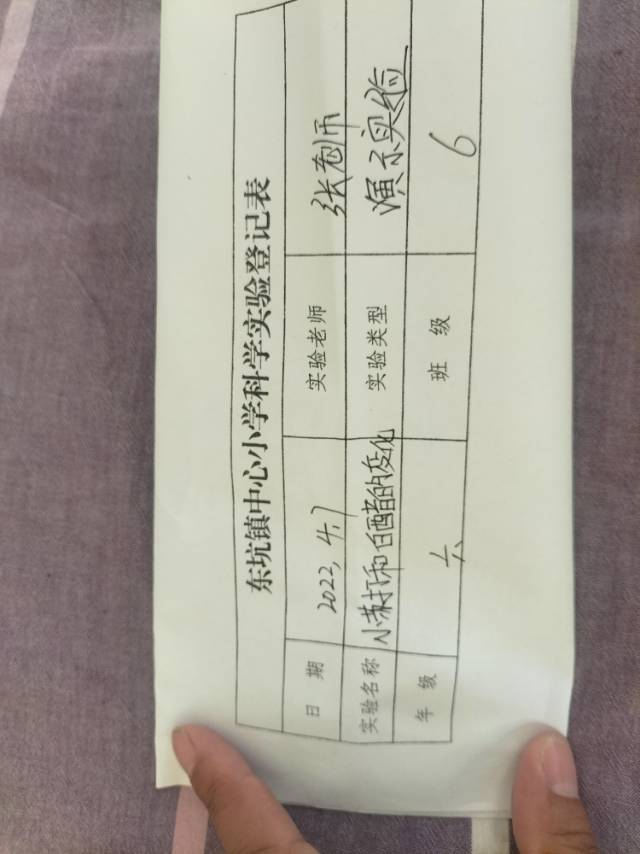 东坑镇中心小学科学实验登记表
日 期 2022, 4.7 实验老师 张老师
实验名称 小苏打和白醋的变化 实验类型 演示实验
年 级 六 班 级 6